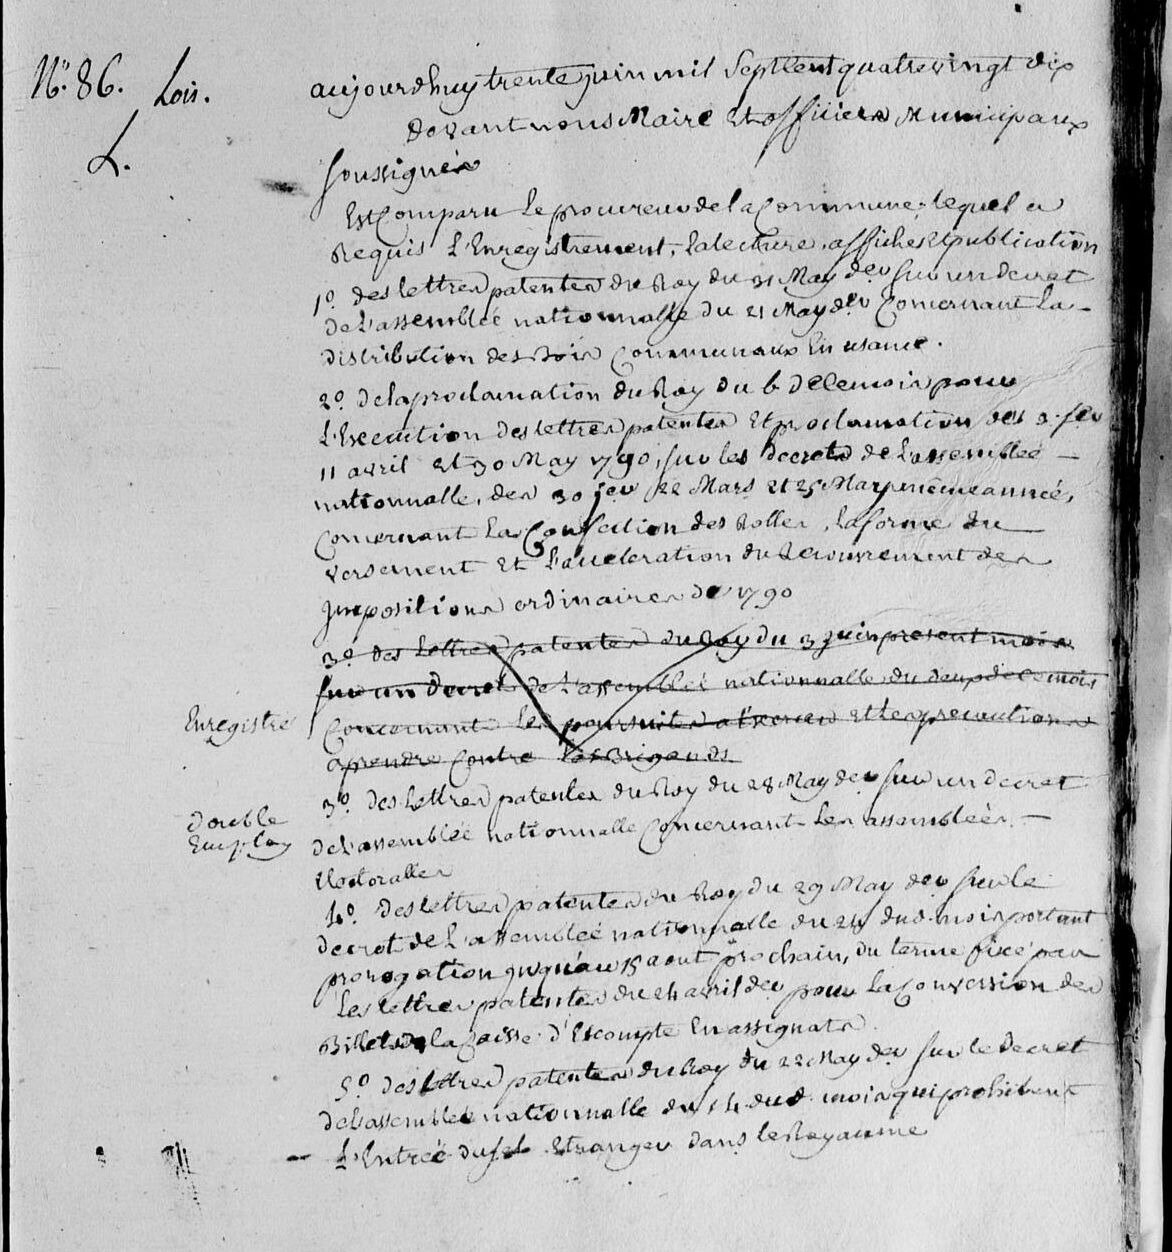 N.o 86. Lois.
L.
aujourdhuy trente juin mil Septcent quatrevingt dix
devant nous Maire Et officiers Municipaux
soussignés
Est Comparu Le procureur de la Commune, lequel a
Requis L'Enregistrement, La lecture, affiches Et publication
1.o des lettres patentes du Roy du 31 May der Sur un decret
de L'assemblée nationnalle du 21 May der Concernant La
distribution des Bois Communaux En usance.
2.o de la proclamation du Roy du 6 de ce mois pour
L'Execution des lettres patentes Et proclamation des 3. fev
11 avril et 30 May 1790, sur les Decrets de L'assemblée
nationnalle, des 30 22 Mars et 25 May même année,
Concernant La Confection des Rolles, La forme du
versement Et L'acceleration du Recouvrement des
Jmpositions ordinaires de 1790
3.o des Lettres patentes du Roy du 3 juin present mois
sur un decret de L'assemblée nationnalle du deux de ce mois
Enregistré
Concernant Les poursuites a Exercer et Les precautions
a prendre Contre Les Brigands
3.o des Lettres patentes du Roy du 28 May der sur un decret
double
Employ
de L'assemblée nationnalle Concernant Les assemblées
Electoralles
4.o des Lettres patentes du Roy du 29 May der sur le
decret de L'assemblée nationnalle du dud. mois portant
prorogation jusqu'au 15 aout prochain, du terme fixé par
Les lettres patentes du 24 avril der pour La Conversion des
Billets de la Caisse d'Escompte En assignats.
5.o des lettres patentes du Roy du 22 May der sur le Decret
de L'assemblée nationnalle du 14 dud. mois qui prohibent
L'Entrée du sel Etranger dans le Royaume